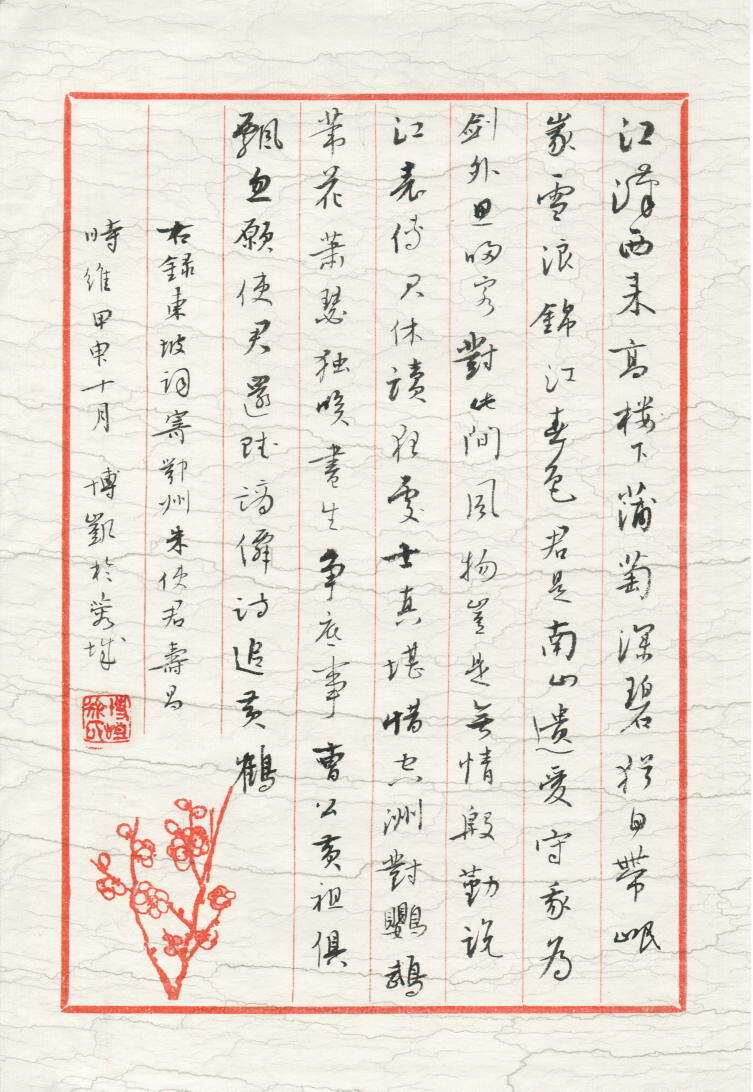 江漢西来高楼下蒲萄深碧猶自帶岷
峩雪浪錦江春色君是南山遺愛守我為
劍外思歸客對此間風物豈是無情殷勤說
江表傳君休讀狂處士真堪惜空洲對鸚鵡
苇花葉瑟独笑書生争底事曹公黄祖俱
飄忽願使君還賦謫僊詩追黄鶴
右録東坡詞寄鄂州朱使君壽昌
時維甲申十月 博凱於蓉城